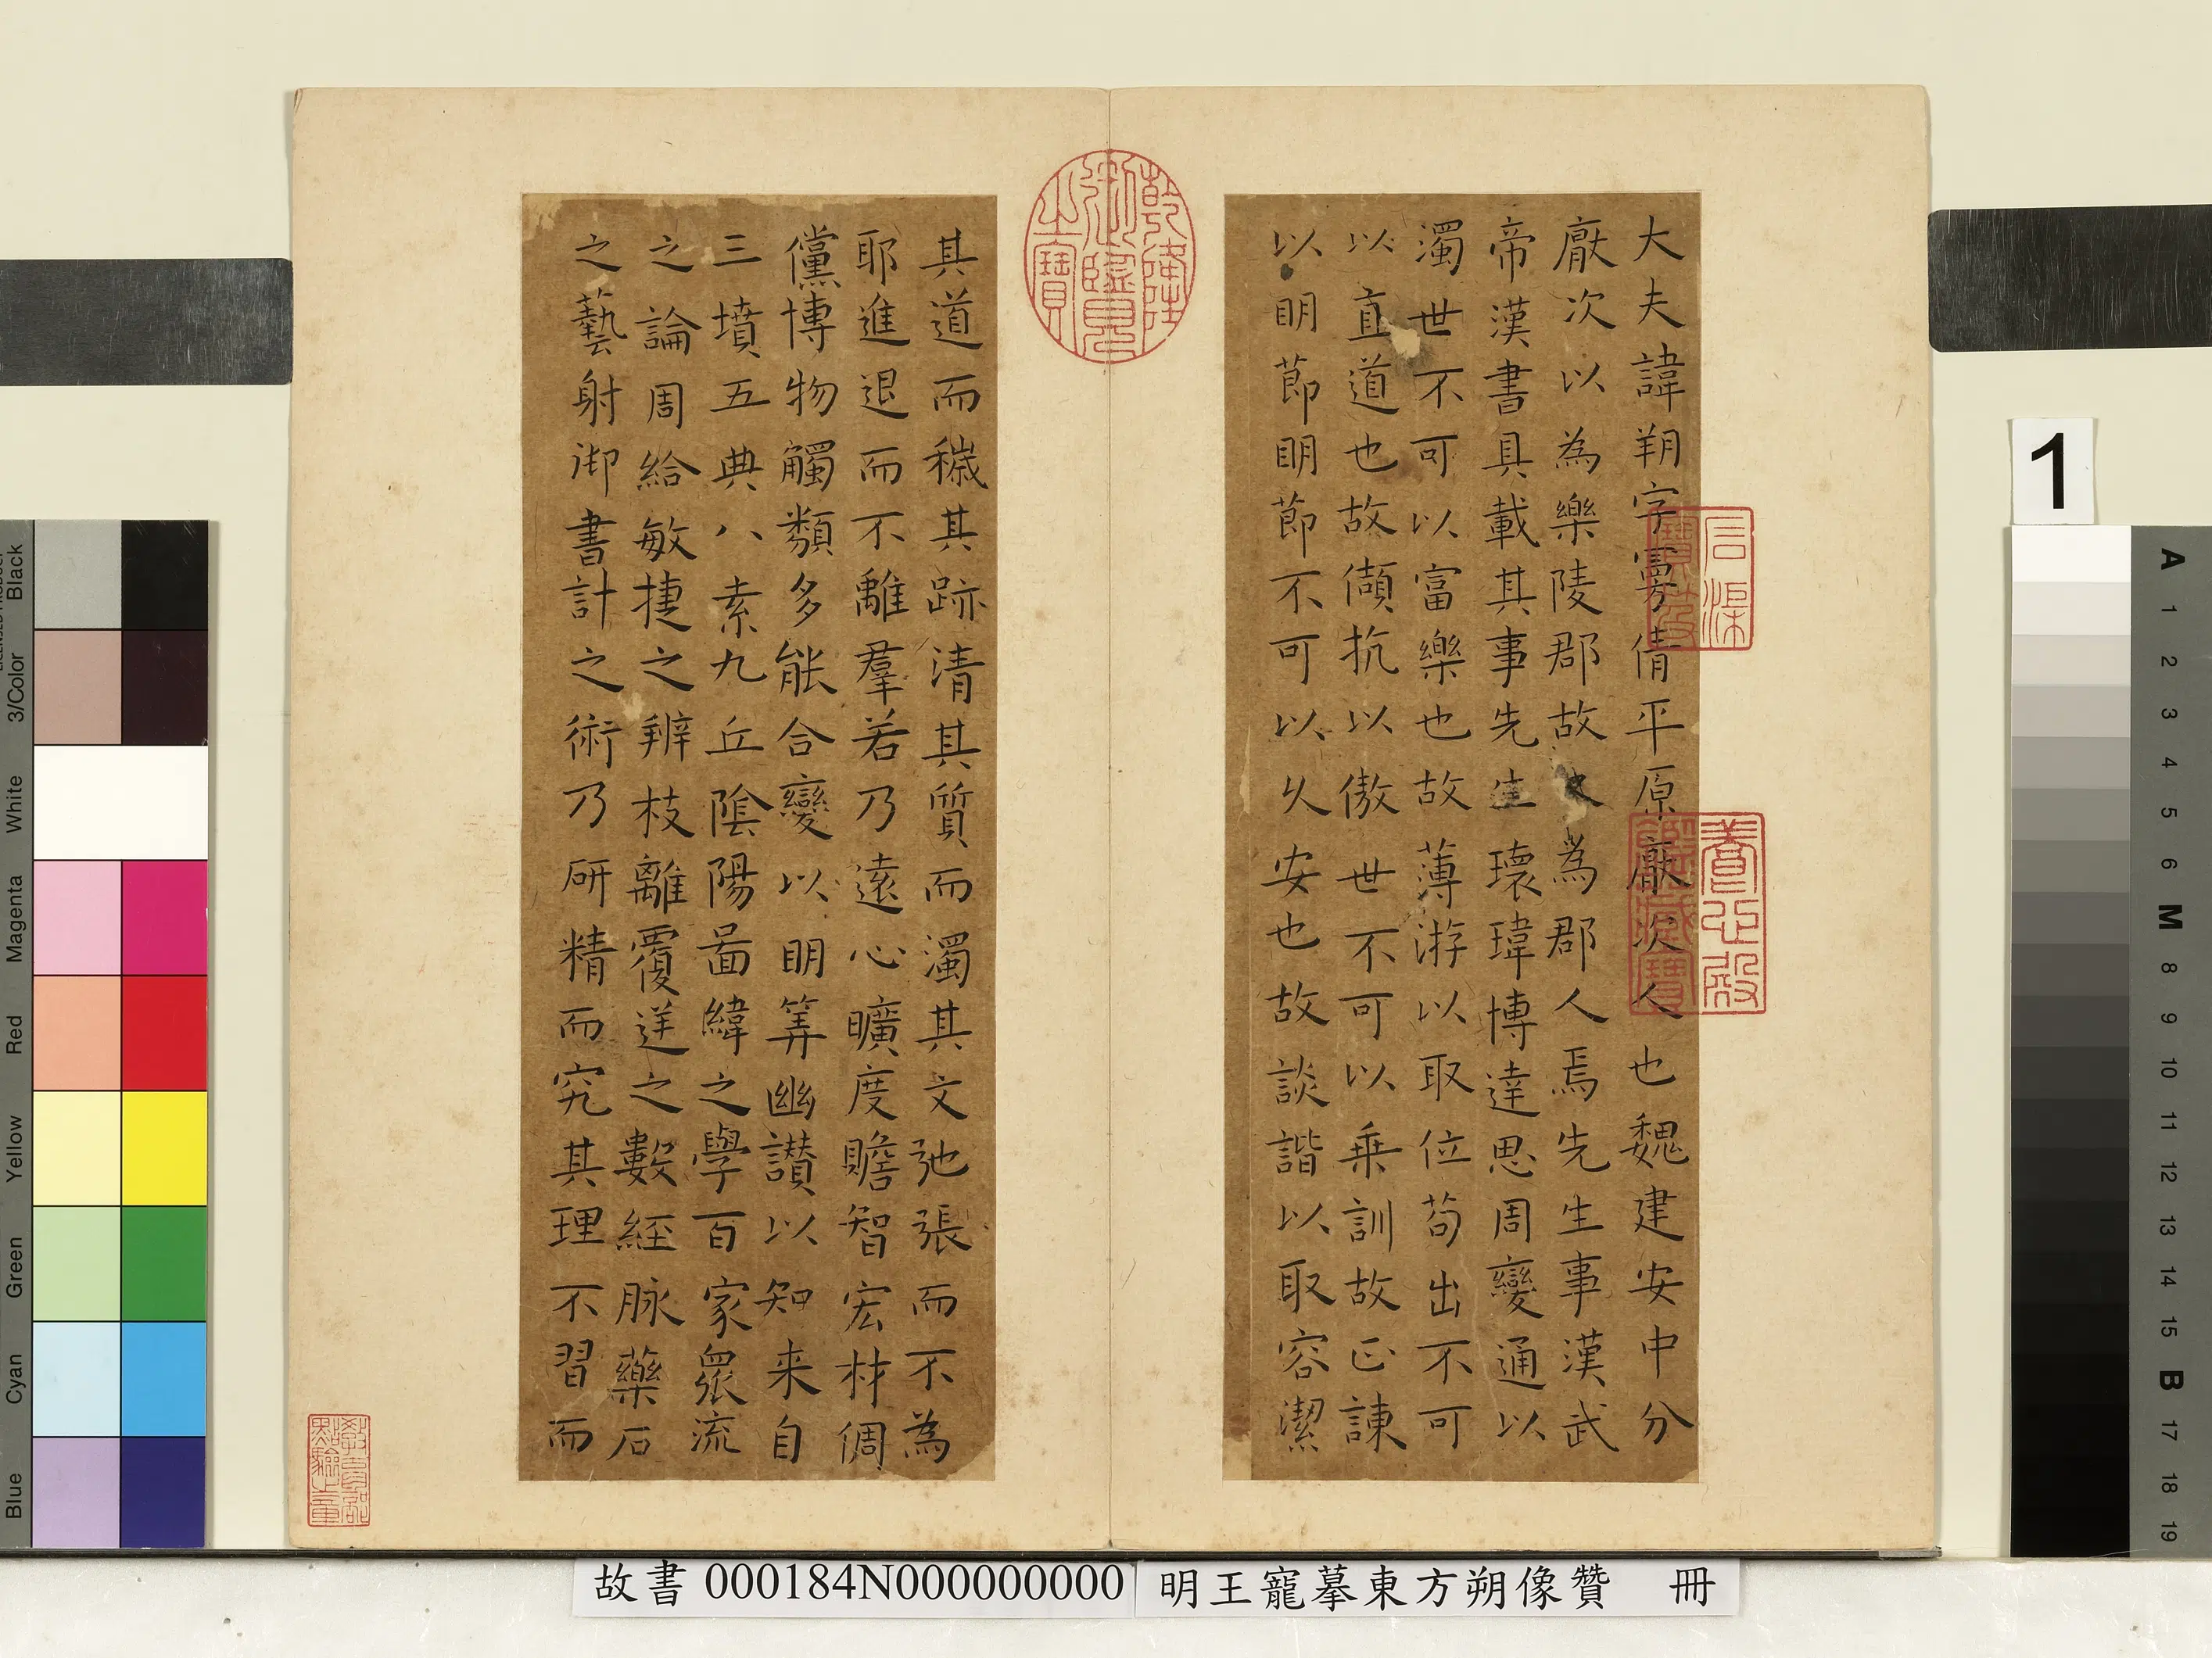 大夫諱朔字曼倩平原厭次人也魏建安中分
厭次以為樂陵郡故又為郡人焉先生事漢武
帝漢書具載其事先生瓌瑋博達思周變通以
濁世不可以富樂也故薄游以取位苟出不可
以直道也故傾抗以傲世不可以垂訓故正諫
以明節明節不可以久安也故談諧以取容潔
其道而穢其跡清其質而濁其文弛張而不為
耶進退而不離羣若乃遠心曠度贍智宏材倜
儻博物觸類多能合變以明筭幽讚以知来自
三墳五典八索九丘陰陽啚緯之學百家眾流
之論周給敏捷之辨枝離覆逆之數經脉藥石
之藝射御書計之術乃研精而究其理不習而
乾隆御覽之寶
石渠寶笈
養心殿鑑藏寶
教育部點驗之章
故書 000184N000000000
明王寵摹東方朔像贊 冊
1
Black
3/Color
White
Magenta
Red
Yellow
Green
Cyan
Blue
A
1
2
3
4
5
6
M
8
9
10
11
12
13
14
15
B
17
18
19